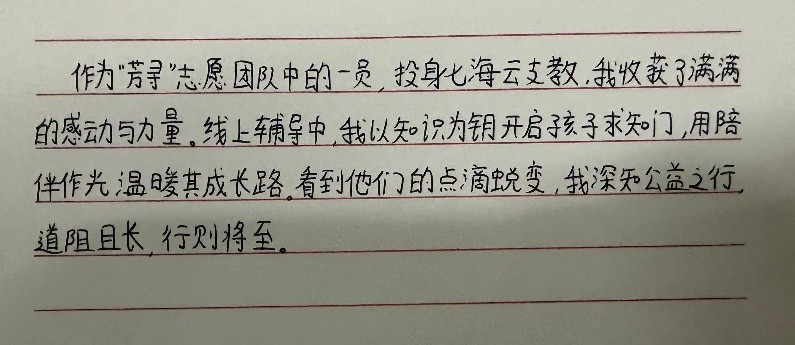 作为“芳寻”志愿团队中的一员,投身七海云支教,我收获了满满
的感动与力量。线上辅导中,我以知识为钥开启孩子求知门,用陪
伴作光温暖其成长路。看到他们的点滴蜕变,我深知公益之行,
道阻且长,行则将至。